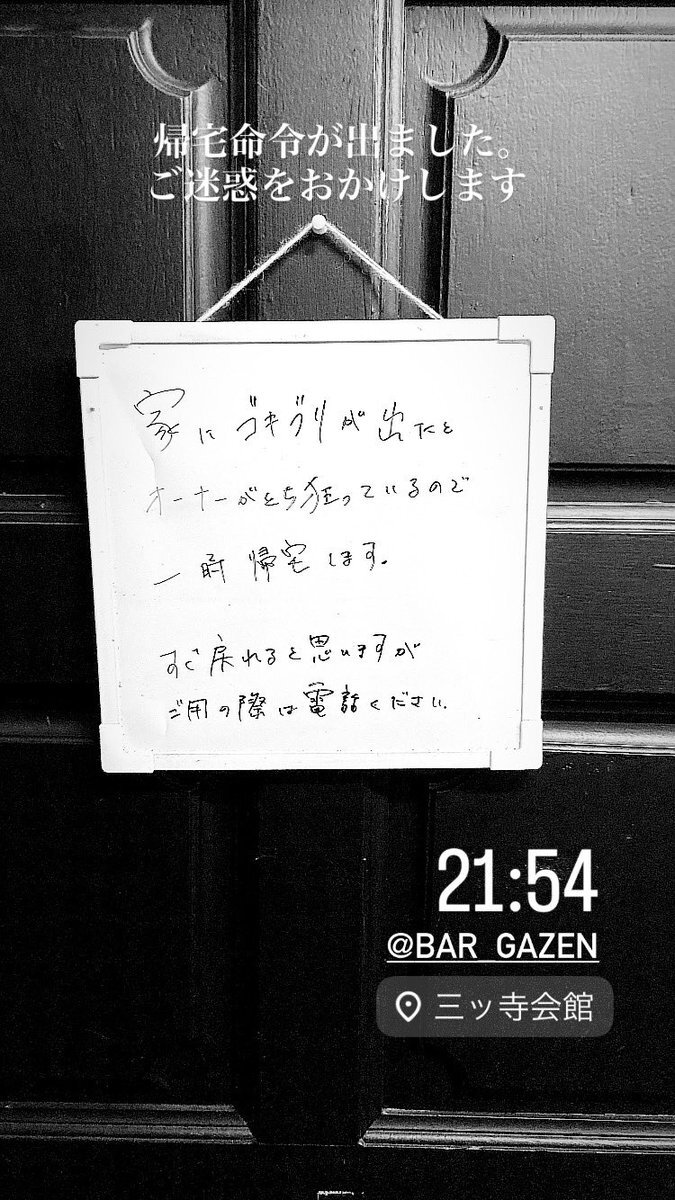 帰宅命令が出ました。
ご迷惑をおかけします
家にゴキブリが出たと
オーナーがとち狂っているので
一時帰宅します。
すぐ戻れると思いますが
ご用の際は電話ください。
21:54
@BAR_GAZEN
三ッ寺会館